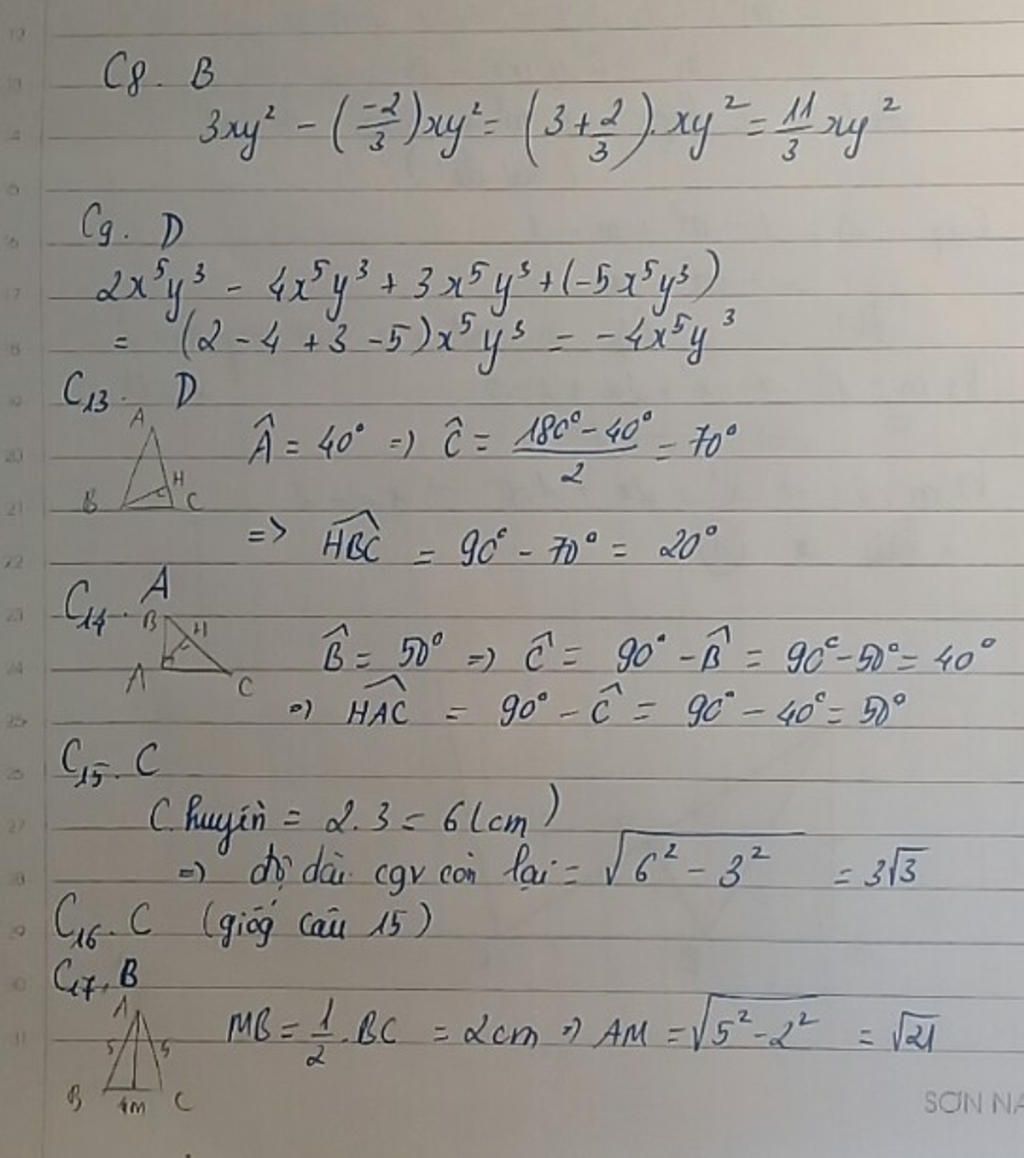 C8. B
3xy² - (-2/3)xy² = (3 + 2/3).xy² = 11/3 xy²
C9. D
2x⁵y³ - 4x⁵y³ + 3x⁵y³ + (-5x⁵y³)
= (2 - 4 + 3 - 5)x⁵y³ = -4x⁵y³
C13. D
A B H C
Â = 40° => Ĉ = (180° - 40°)/2 = 70°
=> HBC^ = 90° - 70° = 20°
C14. A
B H A C
B̂ = 50° => Ĉ = 90° - B̂ = 90° - 50° = 40°
=> HAC^ = 90° - Ĉ = 90° - 40° = 50°
C15. C
C. huyền = 2.3 = 6 (cm)
=> độ dài cgv còn lại = √(6² - 3²) = 3√3
C16. C (giốg câu 15)
C17. B
A 5 5 B 4m C
MB = 1/2 .BC = 2cm => AM = √(5² - 2²) = √21
SƠN NA